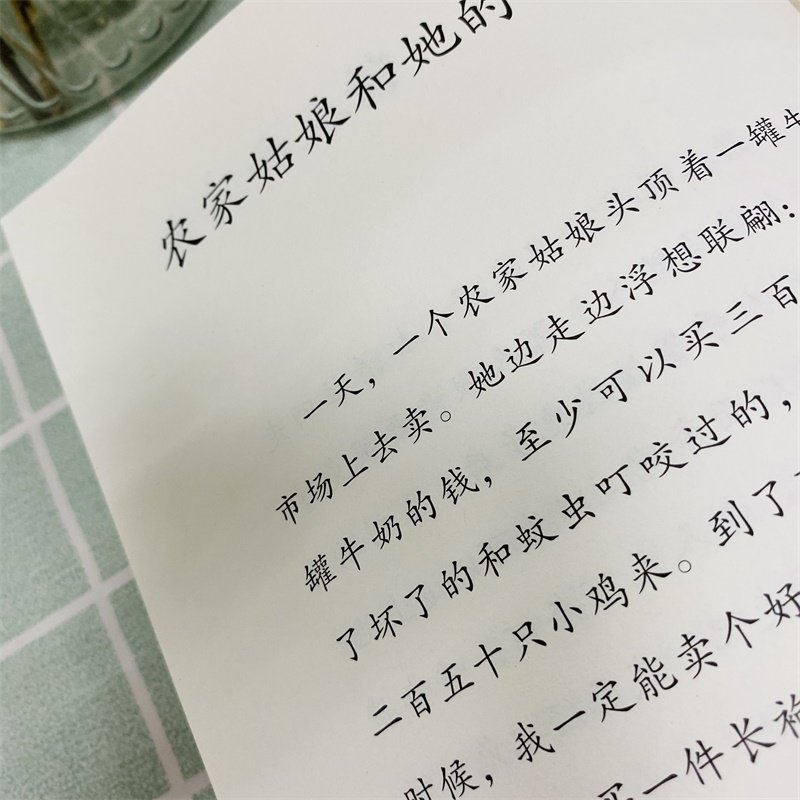 农家姑娘和她的
一天，一个农家姑娘头顶着一罐牛
市场上去卖。她边走边浮想联翩：
罐牛奶的钱，至少可以买三百
了坏了的和蚊虫叮咬过的，
二百五十只小鸡来。到了
时候，我一定能卖个好
买一件长袍